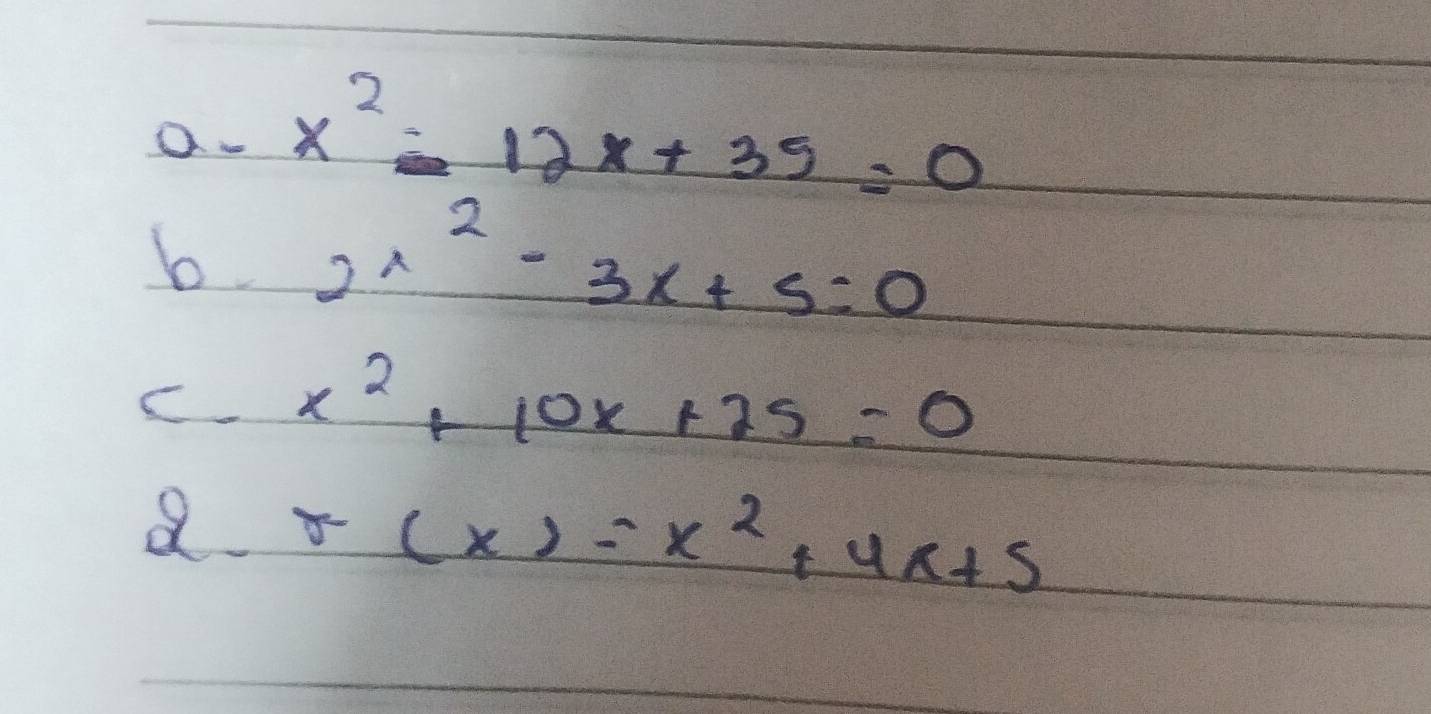 a- x² - 12x + 35 = 0
b- 2x² - 3x + 5 = 0
c- x² + 10x + 25 = 0
d- r(x) = x² + 4x + 5